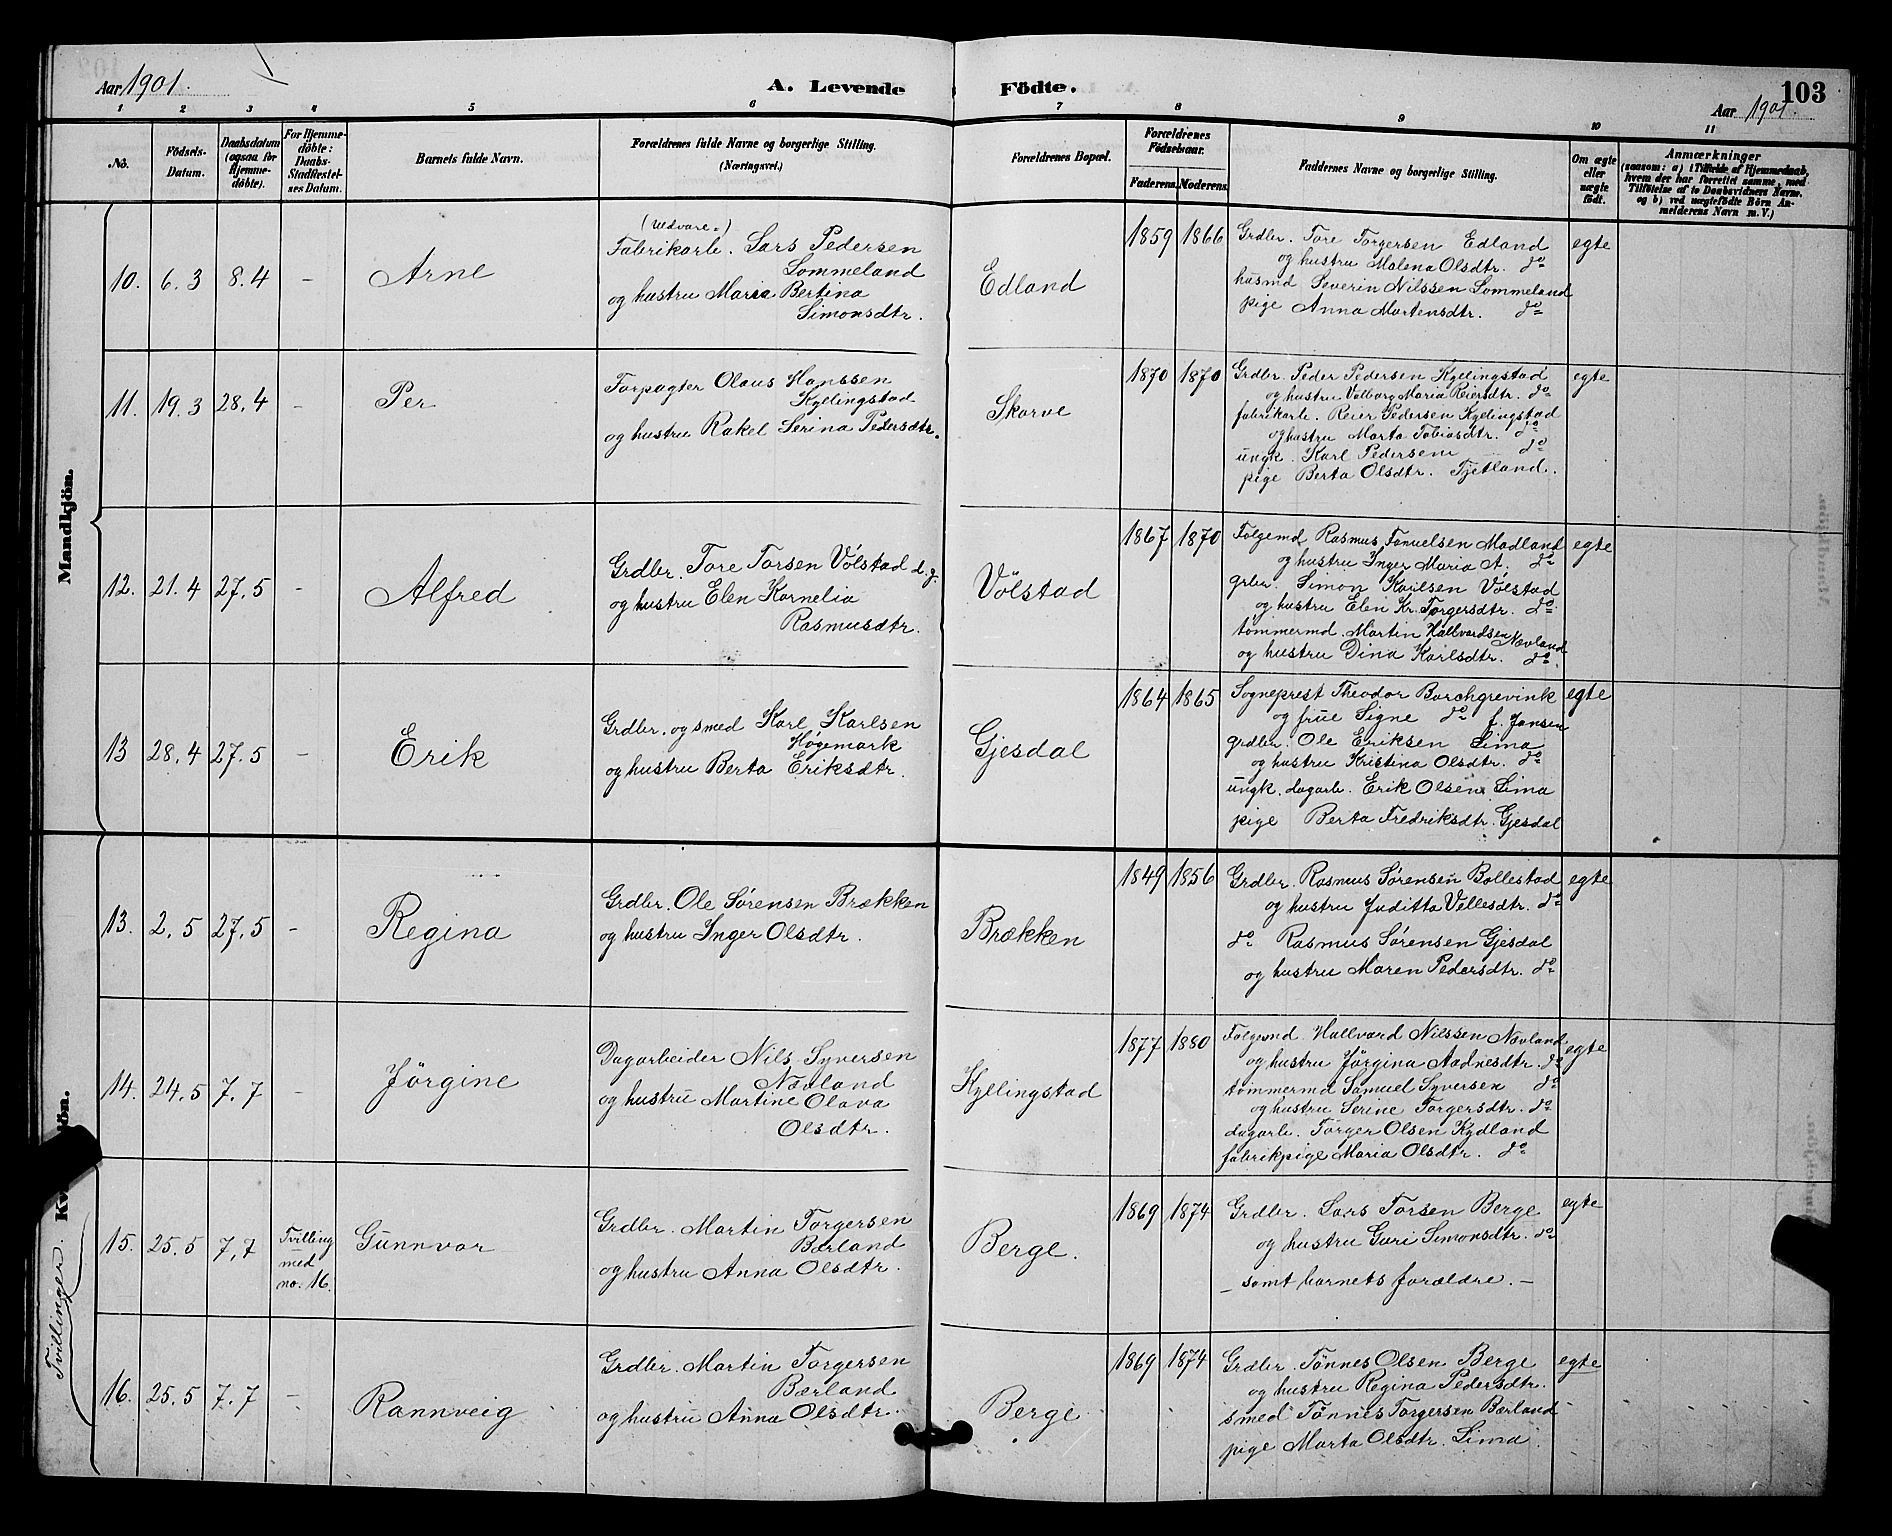 Aar 1901.
A. Levende Födte.
Aar 1901.
103
1 2 3 4 5 6 7 8 9 10 11
No.
Födsels-
Datum.
Daabsdatum
(ogsaa for
Hjemme-
döbte).
For Hjemme-
döbte:
Daabs-
Stadfæstel-
ses Datum.
Barnets fulde Navn.
Forældrenes fulde Navne og borgerlige Stilling.
(Næringsvei.)
Forældrenes Bopæl.
Forældrenes
Födselsaar.
Faderens. Moderens.
Faddernes Navne og borgerlige Stilling.
Om ægte
eller
uægte
födt.
Anmærkninger
(saasom: a) i Tilfælde af Hjemmedaab,
hvem der har forrettet samme, med
Tilföielse af to Daabsvidners Navne.
og b) ved uægtefödte Börn An-
melderens Navn m. V.)
Mandkjön.
10. 6.3 8.4 - Arne
(Uldvare.)
Fabrikarb. Lars Pedersen
Sommeland
og hustru Maria Bertina
Simonsdtr.
Edland
1859 1866
Grdbr. Tore Torgersen Edland
og hustru Malena Olsdtr. do
husmd Severin Nilssen Sommeland
pige Anna Martensdtr. do
egte
11. 19.3 28.4 - Per
Forpagter Olaus Hanssen
Kyllingstad
og hustru Rakel Serina Pedersdtr.
Skarve
1870 1870
Grdbr. Peder Pedersen Kyllingstad
og hustru Valborg Maria Reiersdtr. do
fabrikarb. Reier Pedersen Kyllingstad
og hustru Marta Tobiasdtr. do
ungk. Karl Pedersen do
pige Berta Olsdtr. Tjetland.
egte
12. 21.4 27.5 - Alfred
Grdbr. Tore Torsen Völstad d.y.
og hustru Elen Kornelia
Rasmusdtr.
Völstad
1867 1870
Folgemd Rasmus Fanuelsen Madland
og hustru Inger Maria A. do
grbr. Simon Karlsen Völstad
og hustru Elen Kr. Torgersdtr. do
tömmermd. Martin Hallvardsen Nævland
og hustru Dina Karlsdtr. do
egte
13 28.4 27.5 - Erik
Grdbr. og smed Karl Karlsen
Høgemark
og hustru Berta Eriksdtr.
Gjesdal
1864 1865
Sogneprest Theodor Borchgrevink
og frue Signe do f. Jansen
grdbr. Ole Eriksen Lima
og hustru Kristina Olsdtr. do
ungk. dagarb. Erik Olsen Lima
pige Berta Fredriksdtr. Gjesdal
egte
13. 2.5 27.5 - Regina
Grdbr. Ole Sørensen Brækken
og hustru Inger Olsdtr.
Brækken
1849 1856
Grdbr. Rasmus Sørensen Bollestad
og hustru Juditta Vellesdtr. do
do Rasmus Sørensen Gjesdal
og hustru Maren Pedersdtr. do
egte
14. 24.5 7.7 - Jörgine
Dagarbeider Nils Syversen
Nævland
og hustru Martine Olava
Olsdtr.
Kyllingstad
1877 1880
Folgemd. Hallvard Nilssen Nævland
og hustru Jörgina Aadnesdtr. do
tömmermd Samuel Syversen do
og hustru Serine Torgersdtr. do
dagarb. Torger Olsen Kydland
fabrikpige Maria Olsdtr. do
egte
Tvillinger.
15. 25.5 7.7
Tvilling
med
no. 16.
Gunnvor
Grdbr. Martin Torgersen
Bærland
og hustru Anna Olsdtr.
Berge.
1869 1874
Grdbr. Lars Torsen Berge
og hustru Guri Simonsdtr. do
- samt barnets forældre. -
egte
16. 25.5 7.7 - Rannveig
Grdbr. Martin Torgersen
Bærland
og hustru Anna Olsdtr.
Berge
1869 1874
Grdbr. Tönnes Olsen Berge
og hustru Regina Pedersdtr.
smed Tönnes Torgersen Bærland
pige Marta Olsdtr. Lima
egte